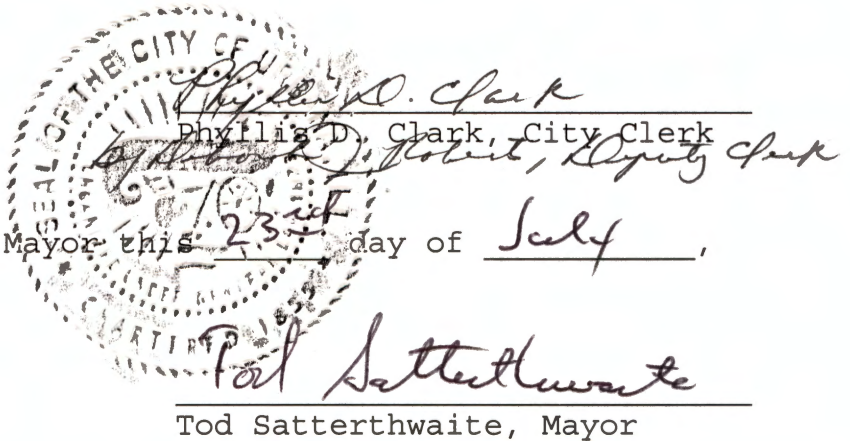 SEAL OF THE CITY OF U
Phyllis D. Clark
Phyllis D. Clark, City Clerk
by Deborah J. Roberts, Deputy Clerk
Mayor this 23rd day of July,
CHARTERED
Tod Satterthwaite
Tod Satterthwaite, Mayor